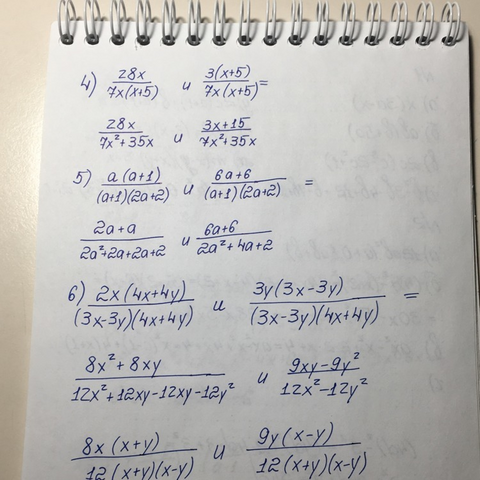 4) 28x/7x(x+5) и 3(x+5)/7x(x+5) =
28x/7x²+35x и 3x+15/7x²+35x
5) a(a+1)/(a+1)(2a+2) и 6a+6/(a+1)(2a+2) =
2a+a/2a²+2a+2a+2 и 6a+6/2a²+4a+2
6) 2x(4x+4y)/(3x-3y)(4x+4y) и 3y(3x-3y)/(3x-3y)(4x+4y) =
8x²+8xy/12x²+12xy-12xy-12y² и 9xy-9y²/12x²-12y²
8x(x+y)/12(x+y)(x-y) и 9y(x-y)/12(x+y)(x-y)